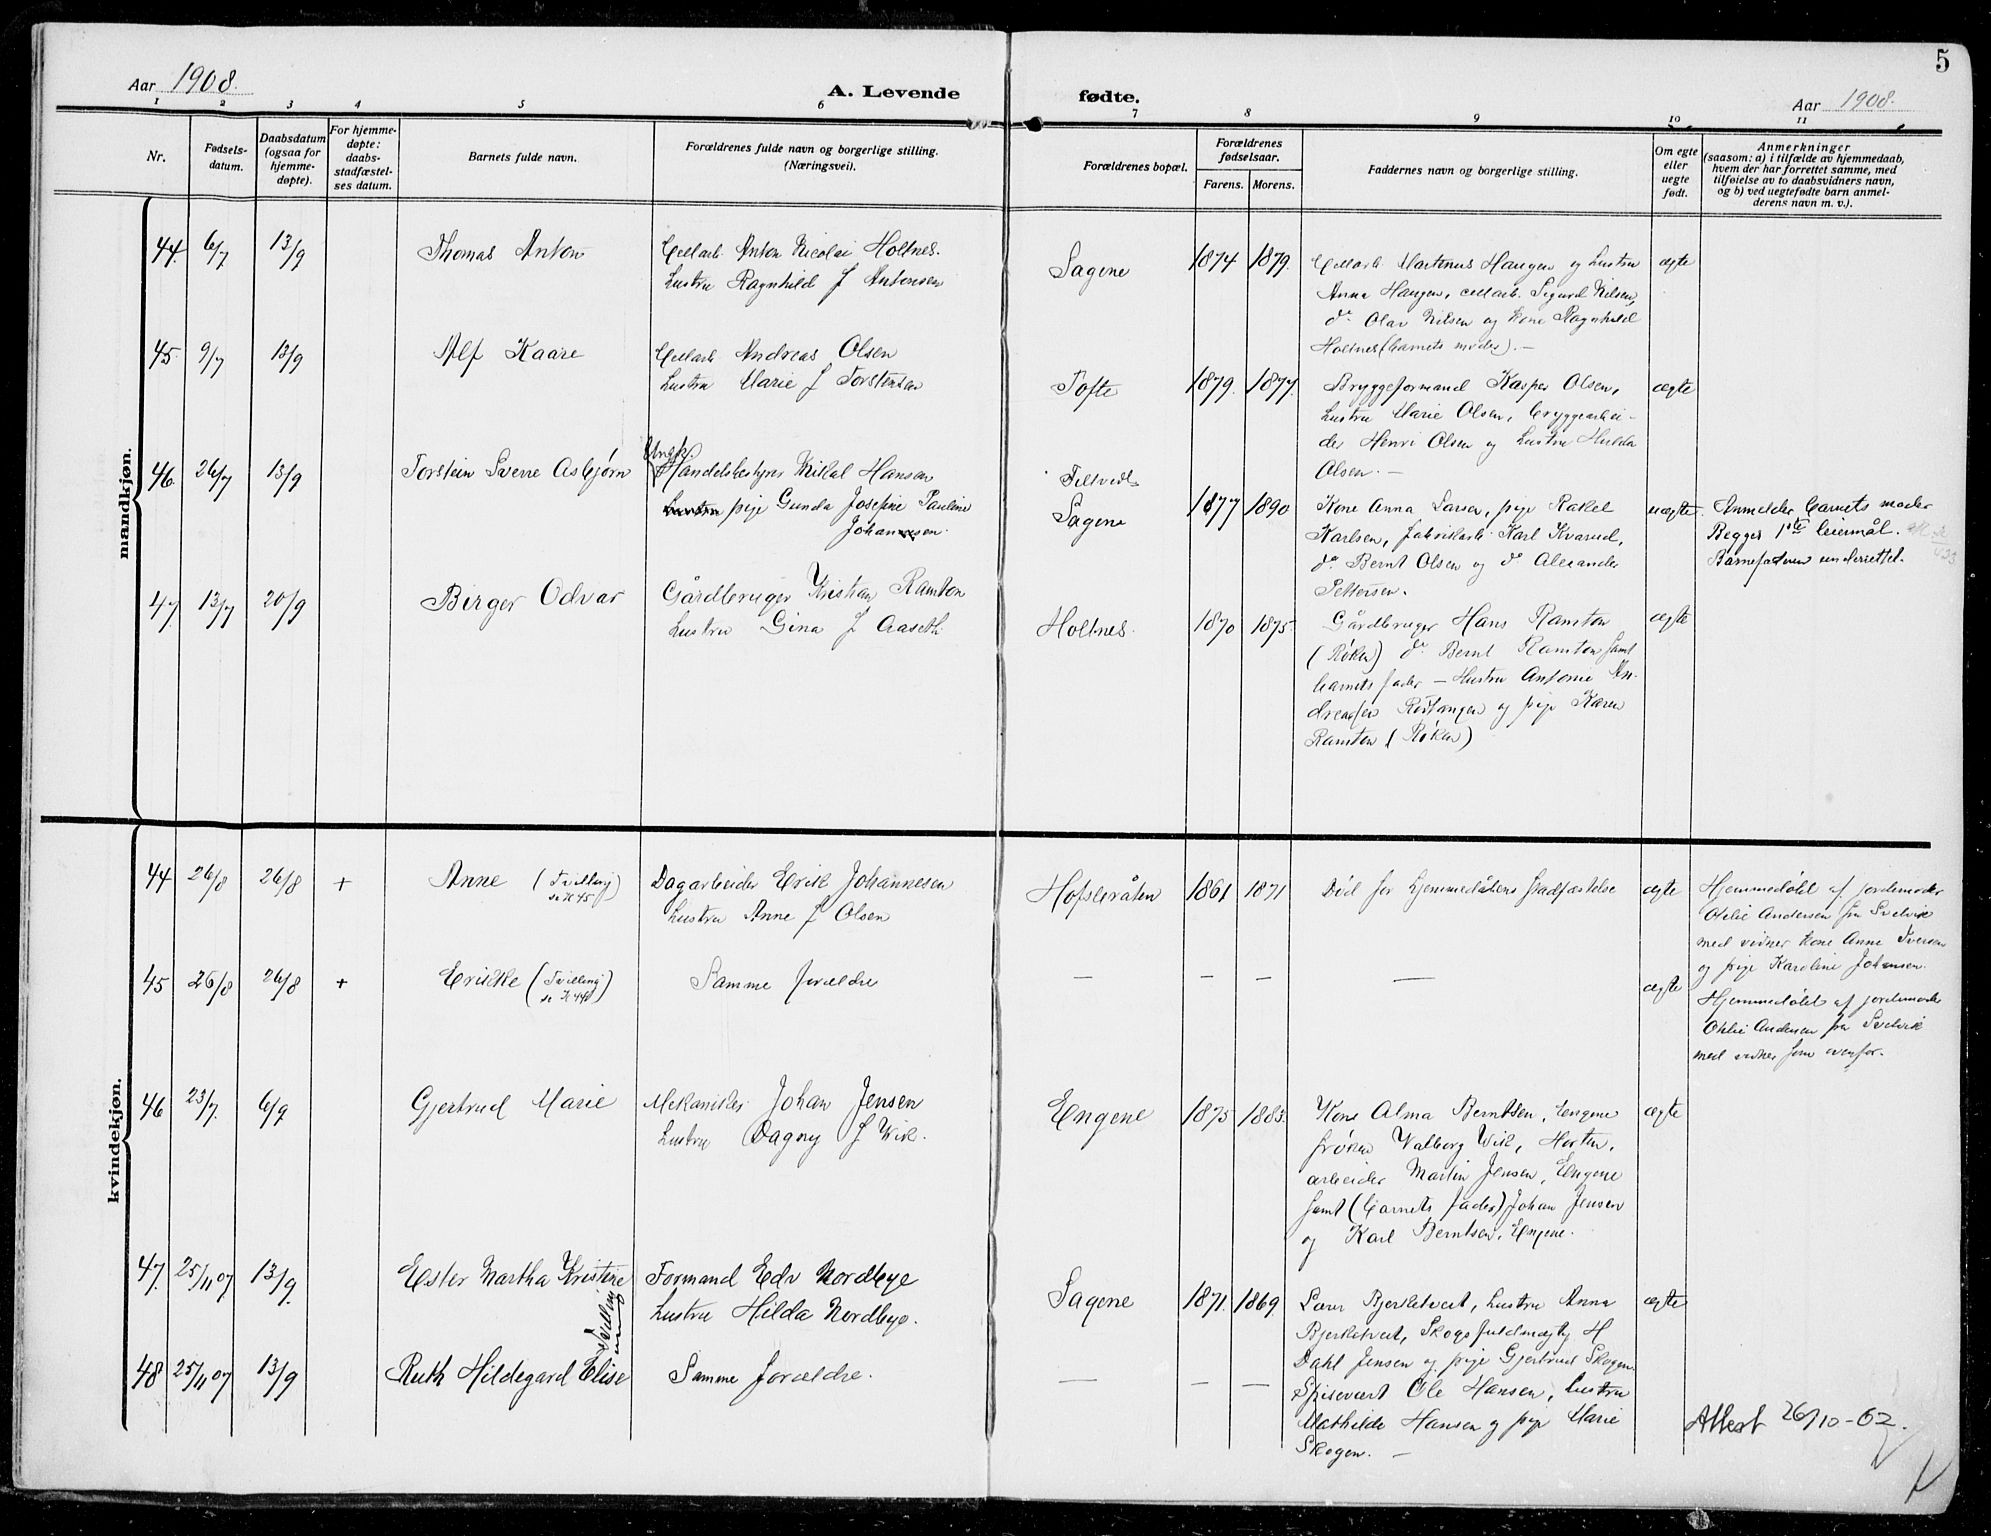 5
Aar 1908.
A. Levende fødte.
Aar 1908.
1 2 3 4 5 6 7 8 9 10 11
Nr.
Fødsels-
datum.
Daabsdatum
(ogsaa for
hjemme-
døpte).
For hjemme-
døpte:
daabs-
stadfæstel-
ses datum.
Barnets fulde navn.
Forældrenes fulde navn og borgerlige stilling.
(Næringsveil).
Forældrenes bopæl.
Forældrenes
fødselsaar.
Farens. Morens.
Faddernes navn og borgerlige stilling.
Om egte
eller
uegte
født.
Anmerkninger
(saasom: a) i tilfælde av hjemmedaab,
hvem der har forrettet samme, med
tilføielse av to daabsvidners navn,
og b) ved uegtefødte barn anmel-
derens navn m. v.).
mandkjøn.
44. 6/7 13/9 Thomas Anton
Cellarb. Anton Nicolai Holtnes.
Hustru Ragnhild f Antonsen
Sagene 1874 1879.
Cellarb Martinus Haugen og hustru
Anna Haugen, cellarb. Sigurd Nilsen,
do Olav Nilsen og Kone Ragnhild
Holtnes (barnets moder). —
ægte
45. 9/7 13/9 Alf Kaare
Cellarb Andreas Olsen
Hustru Marie f Torstensen
Tofte 1879. 1877.
Bryggeformand Kasper Olsen,
hustru Marie Olsen, bryggearbei-
der Henri Olsen og hustru Hulda
Olsen. —
ægte
46. 26/7 13/9 Torstein Sverre Asbjørn
Ungk.
Handelsbestyrer Mikal Hansen
pige Gunda Josefine Pauline
Johannesen.
Filtvedt
Sagene 1877 1890
Kone Anna Larsen, pige Rakel
Karlsen, fabrikarb. Karl Kvarud,
do Bernt Olsen og do Alexander
Pettersen.
uægte.
Anmelder barnets moder
Begges 1ste leiermål.
Barnefaderen underrettet.
47. 13/7 20/9 Birger Odvar
Gårdbruger Kristian Ramton
Hustru Gina f Aaseth
Holtnes. 1870 1875.
Gårdbruger Hans Ramton
(Røken) do Bernt Ramton samt
barnets fader — Hustru Antonie An-
dreasen Rødtangen og pige Karen
Ramton (Røken)
ægte
kvindekjøn.
44 26/8 26/8 + Anne (Tvilling
se K 45)
Dagarbeider Erik Johannesen
Hustru Anne f Olsen
Hofsbråten 1861 1871
Død før hjemmedåbens stadfæstelse
ægte
Hjemmedøbt af jordemoder
Othlie Andersen fra Svelvik
med vidner Kone Anne Iversen
og pige Karoline Johansen.
45 26/8 26/8 + Erikke (Tvilling
se K 44)
Samme forældre
— — — —
ægte
Hjemmedøbt af jordemoder
Othlie Andersen fra Svelvik
med vidner som ovenfor.
46 23/7. 6/9 Gjertrud Marie
Mekaniker Johan Jensen
Hustru Dagny f Wik.
Engene 1875 1883.
Kone Alma Berntsen, Engene
frøken Valborg Wik, Horten,
arbeider Martin Jensen, Engene
samt (barnets fader) Johan Jensen
og Karl Berntsen, Engene.
ægte
47. 25/11 07 13/9. Ester Martha Kristine
Formand Edv Nordbye
Hustru Hilda Nordbye.
Sagene 1871. 1869
Lærer Bjerketvedt, hustru Anna
Bjerketvedt, Skogsfuldmægtig H
Dahl Jensen og pige Gjertrud Skogen
ægte
Tvilling
48 25/11 07 13/9 Ruth Hildegard Elise
Samme forældre.
— — —
Spisevært Ole Hansen, hustru
Mathilde Hansen og pige Marie
Skogen. —
Attest 26/10-62.